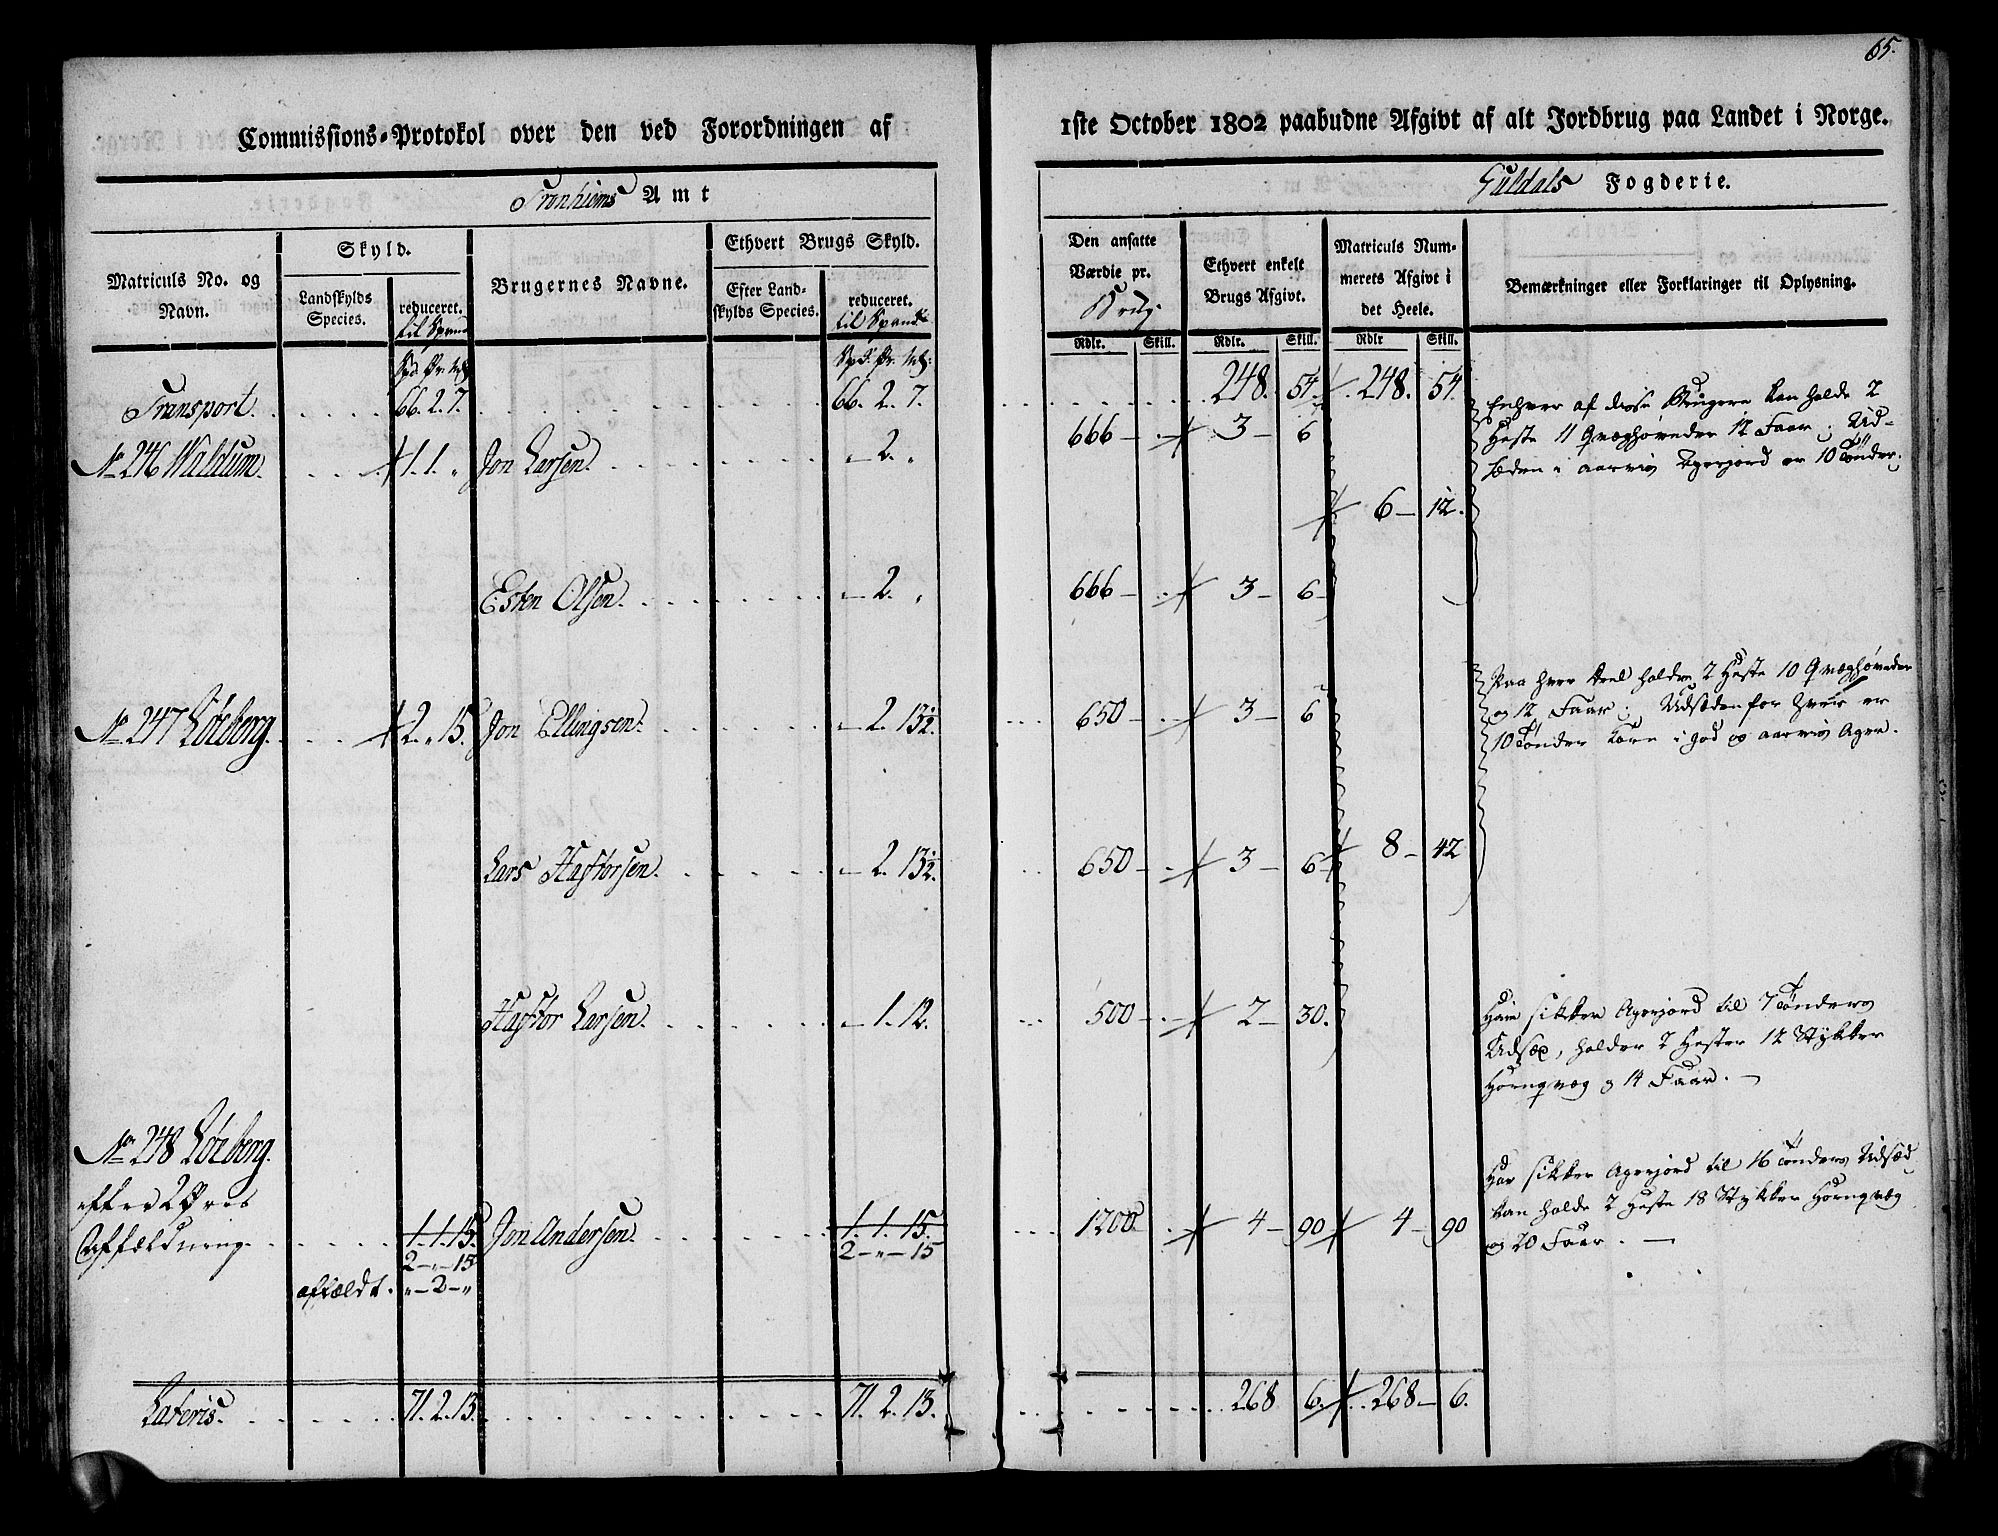 65.
Commissions-Protokol over den ved Forordningen af 1ste October 1802 paabudne Afgivt af alt Jordbrug paa Landet i Norge.
Tronhiems Amt
Guldals Fogderie.
Matriculs No. og Navn.
Skyld.
Landskylds Species.
reduceret. til Spand
Brugernes Navne.
Ethvert Brugs Skyld.
Efter Landskylds Species.
reduceret. til Spand
Den ansatte Værdie pr. Brug.
Ethvert enkelt Brugs Afgivt.
Matriculs Nummerets Afgivt i det Heele.
Bemærkninger eller Forklaringer til Oplysning.
Rdlr. Skill. Rdlr. Skill. Rdlr Skill.
Transport. 66. 2. 7. 66. 2. 7. 248. 54. 248. 54.
No 246 Waldum. 1. 1. „ Jon Larsen. – 2. „ 666 – 3 – 6
Enhver af disse Brugere kan holde 2
Heste 11 Qvæghøveder 12 Faar; Ud-
sæden i aarvis Agerjord er 10 Tønder.
6 – 12.
Esten Olsen. – 2. „ 666 – 3 – 6
No 247 Løeberg. 2. „ 15. Jon Ellingsen. – 2. 13½. 650 – 3 – 6
Paa hver Deel holdes 2 Heste 10 Qvæghøveder
og 12 Faar; Udsæden for hver er
10 Tønder Korn i god og aarvis Ager.
Lars Haftorsen. – 2. 13½. 650 – 3 – 6 8 – 42
Haftor Larsen. – 1. 12. 500 – 2 – 30.
Har sikker Agerjord til 7 Tønders
Udsæd, holder 2 Hester 12 Stykker
Hornqvæg og 14 Faar. –
No 248 Løeberg.
efter 2 Øres
Affældning. 1. 1. 15. Jon Andersen. 1. 1. 15. 1200. 4 – 90 4 – 90
2 – „ – 15 2 – „ – 15
affældt. „ – 2 – „
Har sikker Agerjord til 16 Tønders Udsæd
kan holde 2 Heste 18 Stykker Hornqvæg
og 20 Faar. –
Lateris. 71. 2. 13. 71. 2. 13. 268 6. 268 – 6.